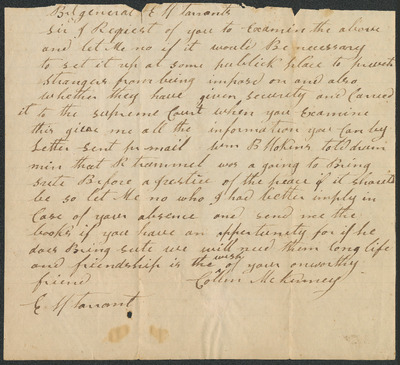 Brigeneral E H Tarrant
Sir I Request of you to Examin the above
and let Me no if it would Be necessary
to set it up at some publick place to prevent
strangers from being impose on and also
whether they have given security and Carried
it to the supreme Court when you Examine
this give me all the information you can by
Letter sent pr mail told
min that R trammel was a going to Bring
sute Before a Jestice of the peace if it should
be so let Me no who I had better imply in
Case of your absence and send me the
books if you have an oppertunity for if he
does Bring sute we will need them long life
and friendship is the wish of your onworthy
friend Collin McKinney
E H Tarrant